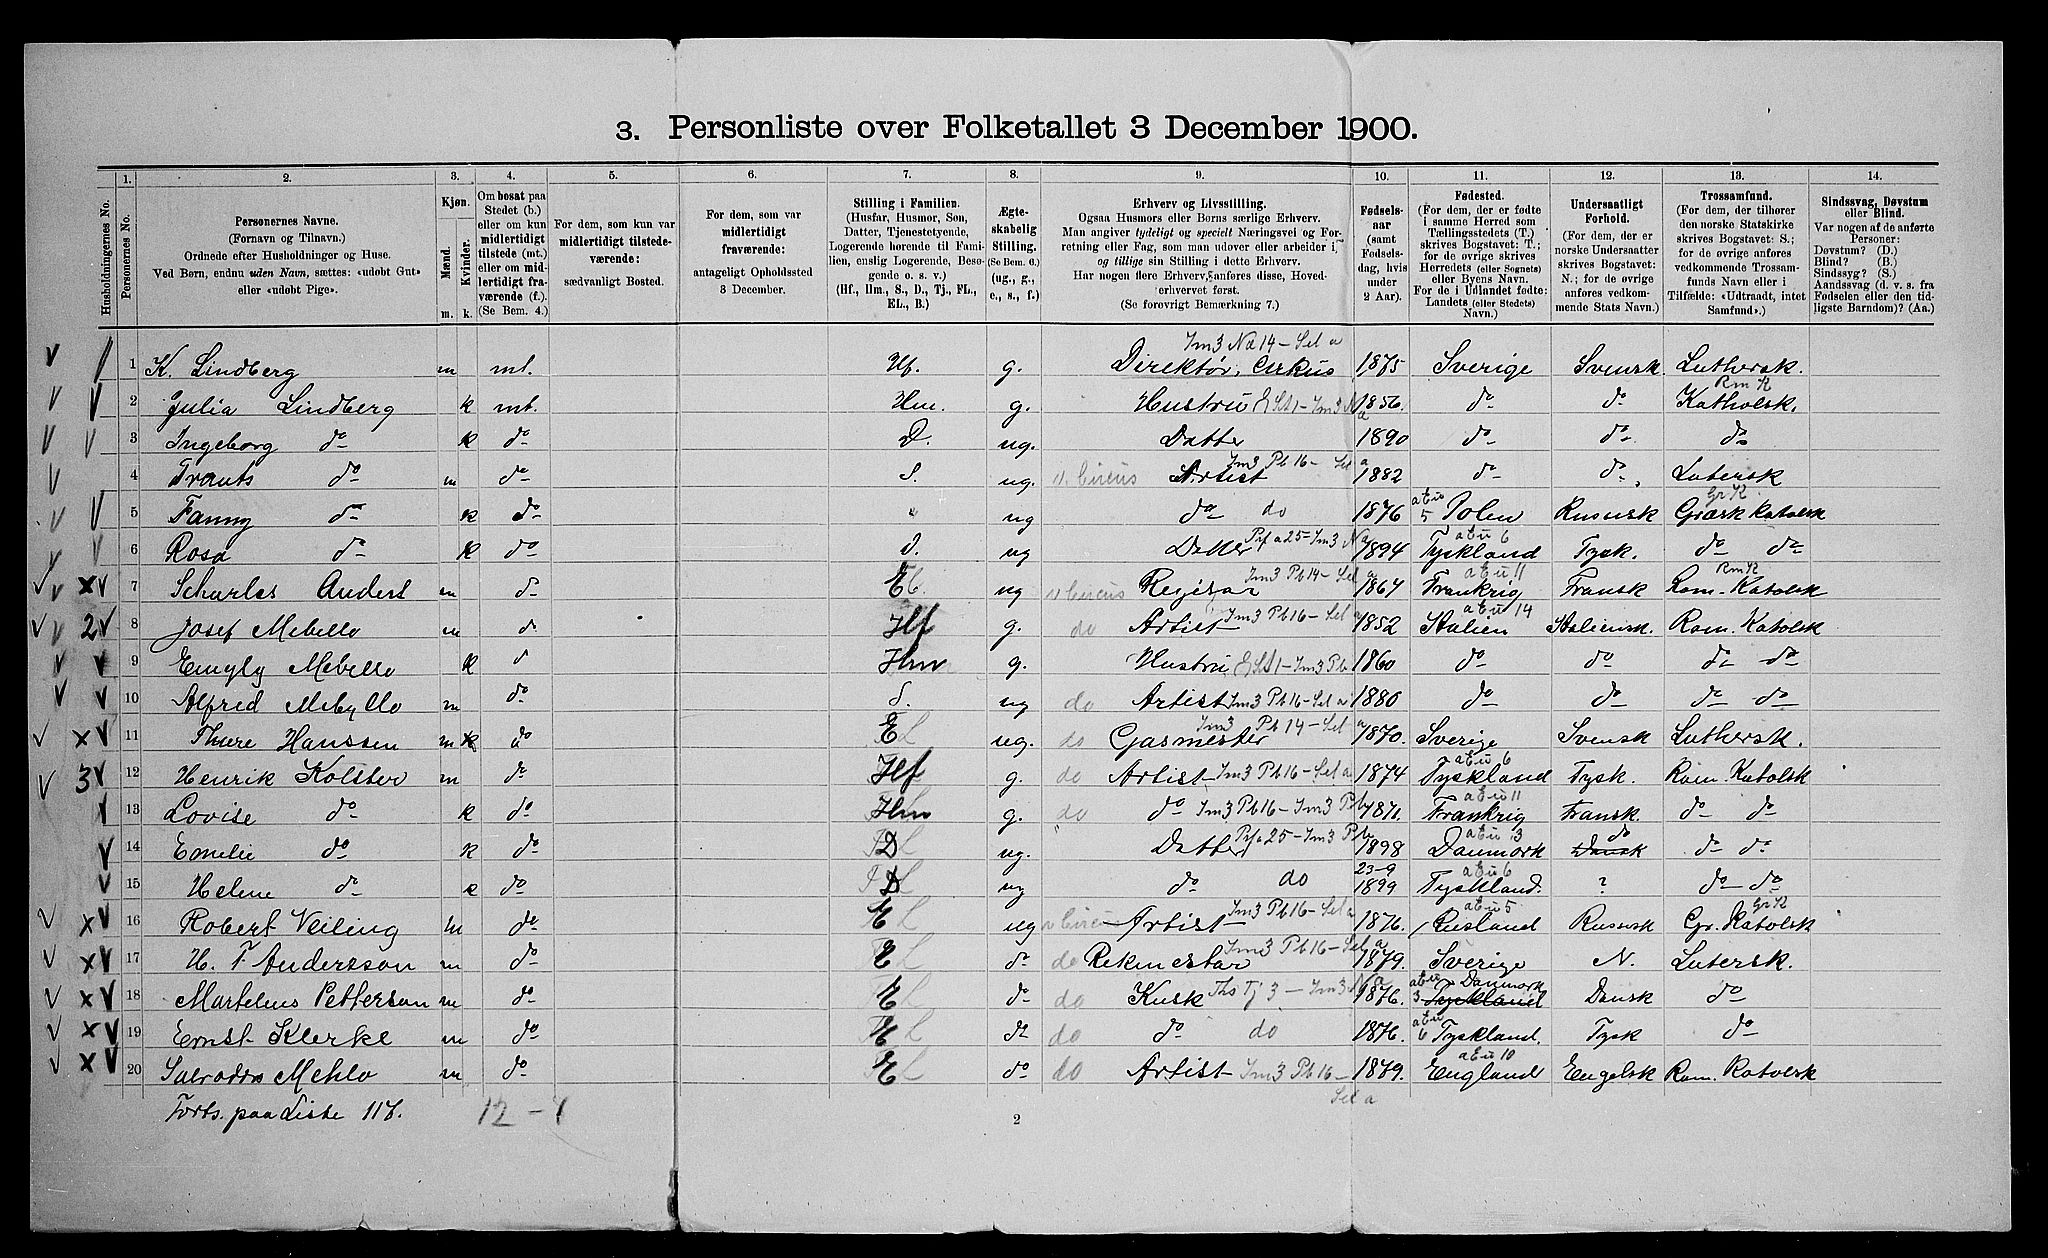 3. Personliste over Folketallet 3 December 1900.
1. 2. 3. 4. 5. 6. 7. 8. 9. 10. 11. 12. 13. 14.
Husholdningernes No.
Personernes No.
Personernes Navne.
(Fornavn og Tilnavn.)
Ordnede efter Husholdninger og Huse.
Ved Børn, endnu uden Navn, sættes: «udøbt Gut»
eller «udøbt Pige».
Kjøn.
Mænd. Kvinder.
m. k.
Om bosat paa
Stedet (b.)
eller om kun
midlertidigt
tilstede (mt.)
eller om mid-
lertidigt fra-
værende (f.).
(Se Bem. 4.)
For dem, som kun var
midlertidigt tilstede-
værende:
sædvanligt Bosted.
For dem, som var
midlertidigt
fraværende:
antageligt Opholdssted
3 December.
Stilling i Familien.
(Husfar, Husmor, Søn,
Datter, Tjenestetyende,
Logerende hørende til Fami-
lien, enslig Logerende, Besø-
gende o. s. v.)
(Hf., Hm., S., D., Tj., FL.,
EL., B.)
Ægte-
skabelig
Stilling.
(Se Bem. 6.)
(ug., g.,
e., s., f.)
Erhverv og Livsstilling.
Ogsaa Husmors eller Børns særlige Erhverv.
Man angiver tydeligt og specielt Næringsvei og For-
retning eller Fag, som man udover eller arbeider i,
og tillige sin Stilling i dette Erhverv.
Har nogen flere Erhverv, anføres disse, Hoved-
erhvervet først.
(Se forøvrigt Bemærkning 7.)
Fødsels-
aar
(samt
Fødsels-
dag, hvis
under
2 Aar).
Fødested.
(For dem, der er fødte
i samme Herred som
Tællingsstedets (T.)
skrives Bogstavet: T.;
for de øvrige skrives
Herredets (eller Sognets)
eller Byens Navn.
For de i Udlandet fødte:
Landets (eller Stedets)
Navn.)
Undersaatligt
Forhold.
(For dem, der er
norske Undersaatter
skrives Bogstavet:
N.; for de øvrige
anføres vedkom-
mende Stats Navn.)
Trossamfund.
(For dem, der tilhører
den norske Statskirke
skrives Bogstavet: S.;
for de øvrige anføres
vedkommende Trossam-
funds Navn eller i
Tilfælde: «Udtraadt, intet
Samfund».)
Sindssvag, Døvstum
eller Blind.
Var nogen af de anførte
Personer:
Døvstum? (D.)
Blind? (B.)
Sindssyg? (S.)
Aandssvag (d. v. s. fra
Fødselen eller den tid-
ligste Barndom)? (Aa.)
Im3 Na14 – Sel a
1 K. Lindberg m mt. Hf. g. Direktør, Cirkus 1875 Sverige Svensk Luthersk.
Rm K
2 Julia Lindberg k mt. Hm. g. Hustru G St 1 – Im3 Na 1856. do do Katholsk.
3 Ingeborg do k do D. ug. Datter 1890 do do do
Im3 Pb 16 – Sel a
4 Frants do m do S. ug. v. Circus Artist 1882 do do Lutersk
Gr K
5 Fanny do k do " ug do do 1876 a E u 5 Polen Russisk Græsk Katolsk
Prf a 25 – Im3 Na a E u 6
6 Rosa do k do d. ug Datter 1894 Tyskland Tysk. do do
Im3 Pb 14 – Sel a a E u 11 Rm K
7 Scharles Anders m d EL. ug v Circus Regisør 1867 Frankrig Fransk Rom. Katolsk
a E u 14
2 8 Josef Mebello m d Hf g. do Artist Im3 Pb16 – Sel a 1852 Italien Italiensk. Rom. Katolsk
9 Emyly Mebello k d Hm g. Hustru G St 1 – Im3 Pb 1860 do do do do
10 Alfred Mebyllo m do S. ug do Artist Im3 Pb16 – Sel a 1880 do do do do
Im3 Pb 14 – Sel a
11 Thure Hanssen m do EL ug. do Gasmester 1870. Sverige Svensk Luthersk.
a E u 6
3 12 Henrik Kolster m do Hf g. do Artist Im3 Pb16 – Sel a 1874 Tyskland Tysk. Rom. Katolsk
a E u 11
13 Lovise do k do Hm g. do do Im3 Pb16 – Im3 Pb 1871. Frankrig Fransk do do
Prf a 25 – Im3 Pb a E u 3 do
14 Emelie do k do D ug. Datter 1898 Danmark Dansk do do
23-9 a E u 6
15 Helene do k do D ug do do 1899 Tyskland. ? do do
a E u 5 Gr K
16 Robert Veiling m do EL ug v Circus Artist Im3 Pb16 – Sel a 1876. Rusland Russisk Gr. Katolsk
17 H. F. Andersson m do EL do do Rekvisitør Im3 Pb 16 – Sel a 1879. Sverige N. Lutersk.
a E u 3 Danmark
18 Martelius Petterson m do EL do do Kusk Ths Tj 3 – Im3 Na 1876. Tyskland Dansk do
19 Ernst Klerke m do EL do do do do 1876. a E u 6 Tyskland. Tysk do
a E u 10
20 Salvadora Mehlo m do EL do do Artist Im3 Pb 16 – Sel a 1879. England Engelsk Rom. Katolsk
Forts. paa Liste 117. 12 – 7
2